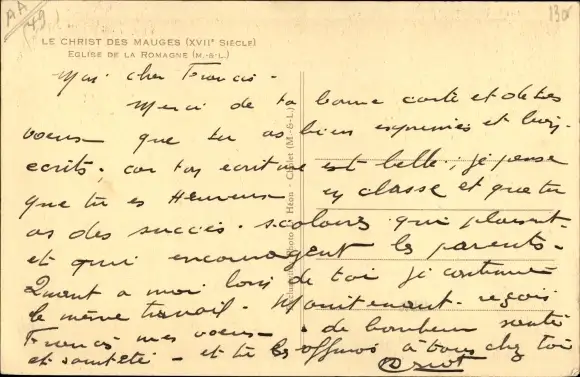 AA
49
130
LE CHRIST DES MAUGES (XVIIe SIÈCLE)
EGLISE DE LA ROMAGNE (M.-&-L.)
Mon cher Francis -
Merci de ta bonne carte et de tes
voeux que tu as bien exprimés et bien
ecrits, car ton ecriture est belle ; je pense
que tu es Heureux en classe et que tu
as des succès scolaires qui plaisent
et qui encouragent les parents -
Quant a moi loin de toi je continue
le même travail - Maintenant reçois
Francis mes voeux de bonheur santé
et sainteté - et tu les offriras à tous chez toi
Héon - Cholet (M.-&-L.)